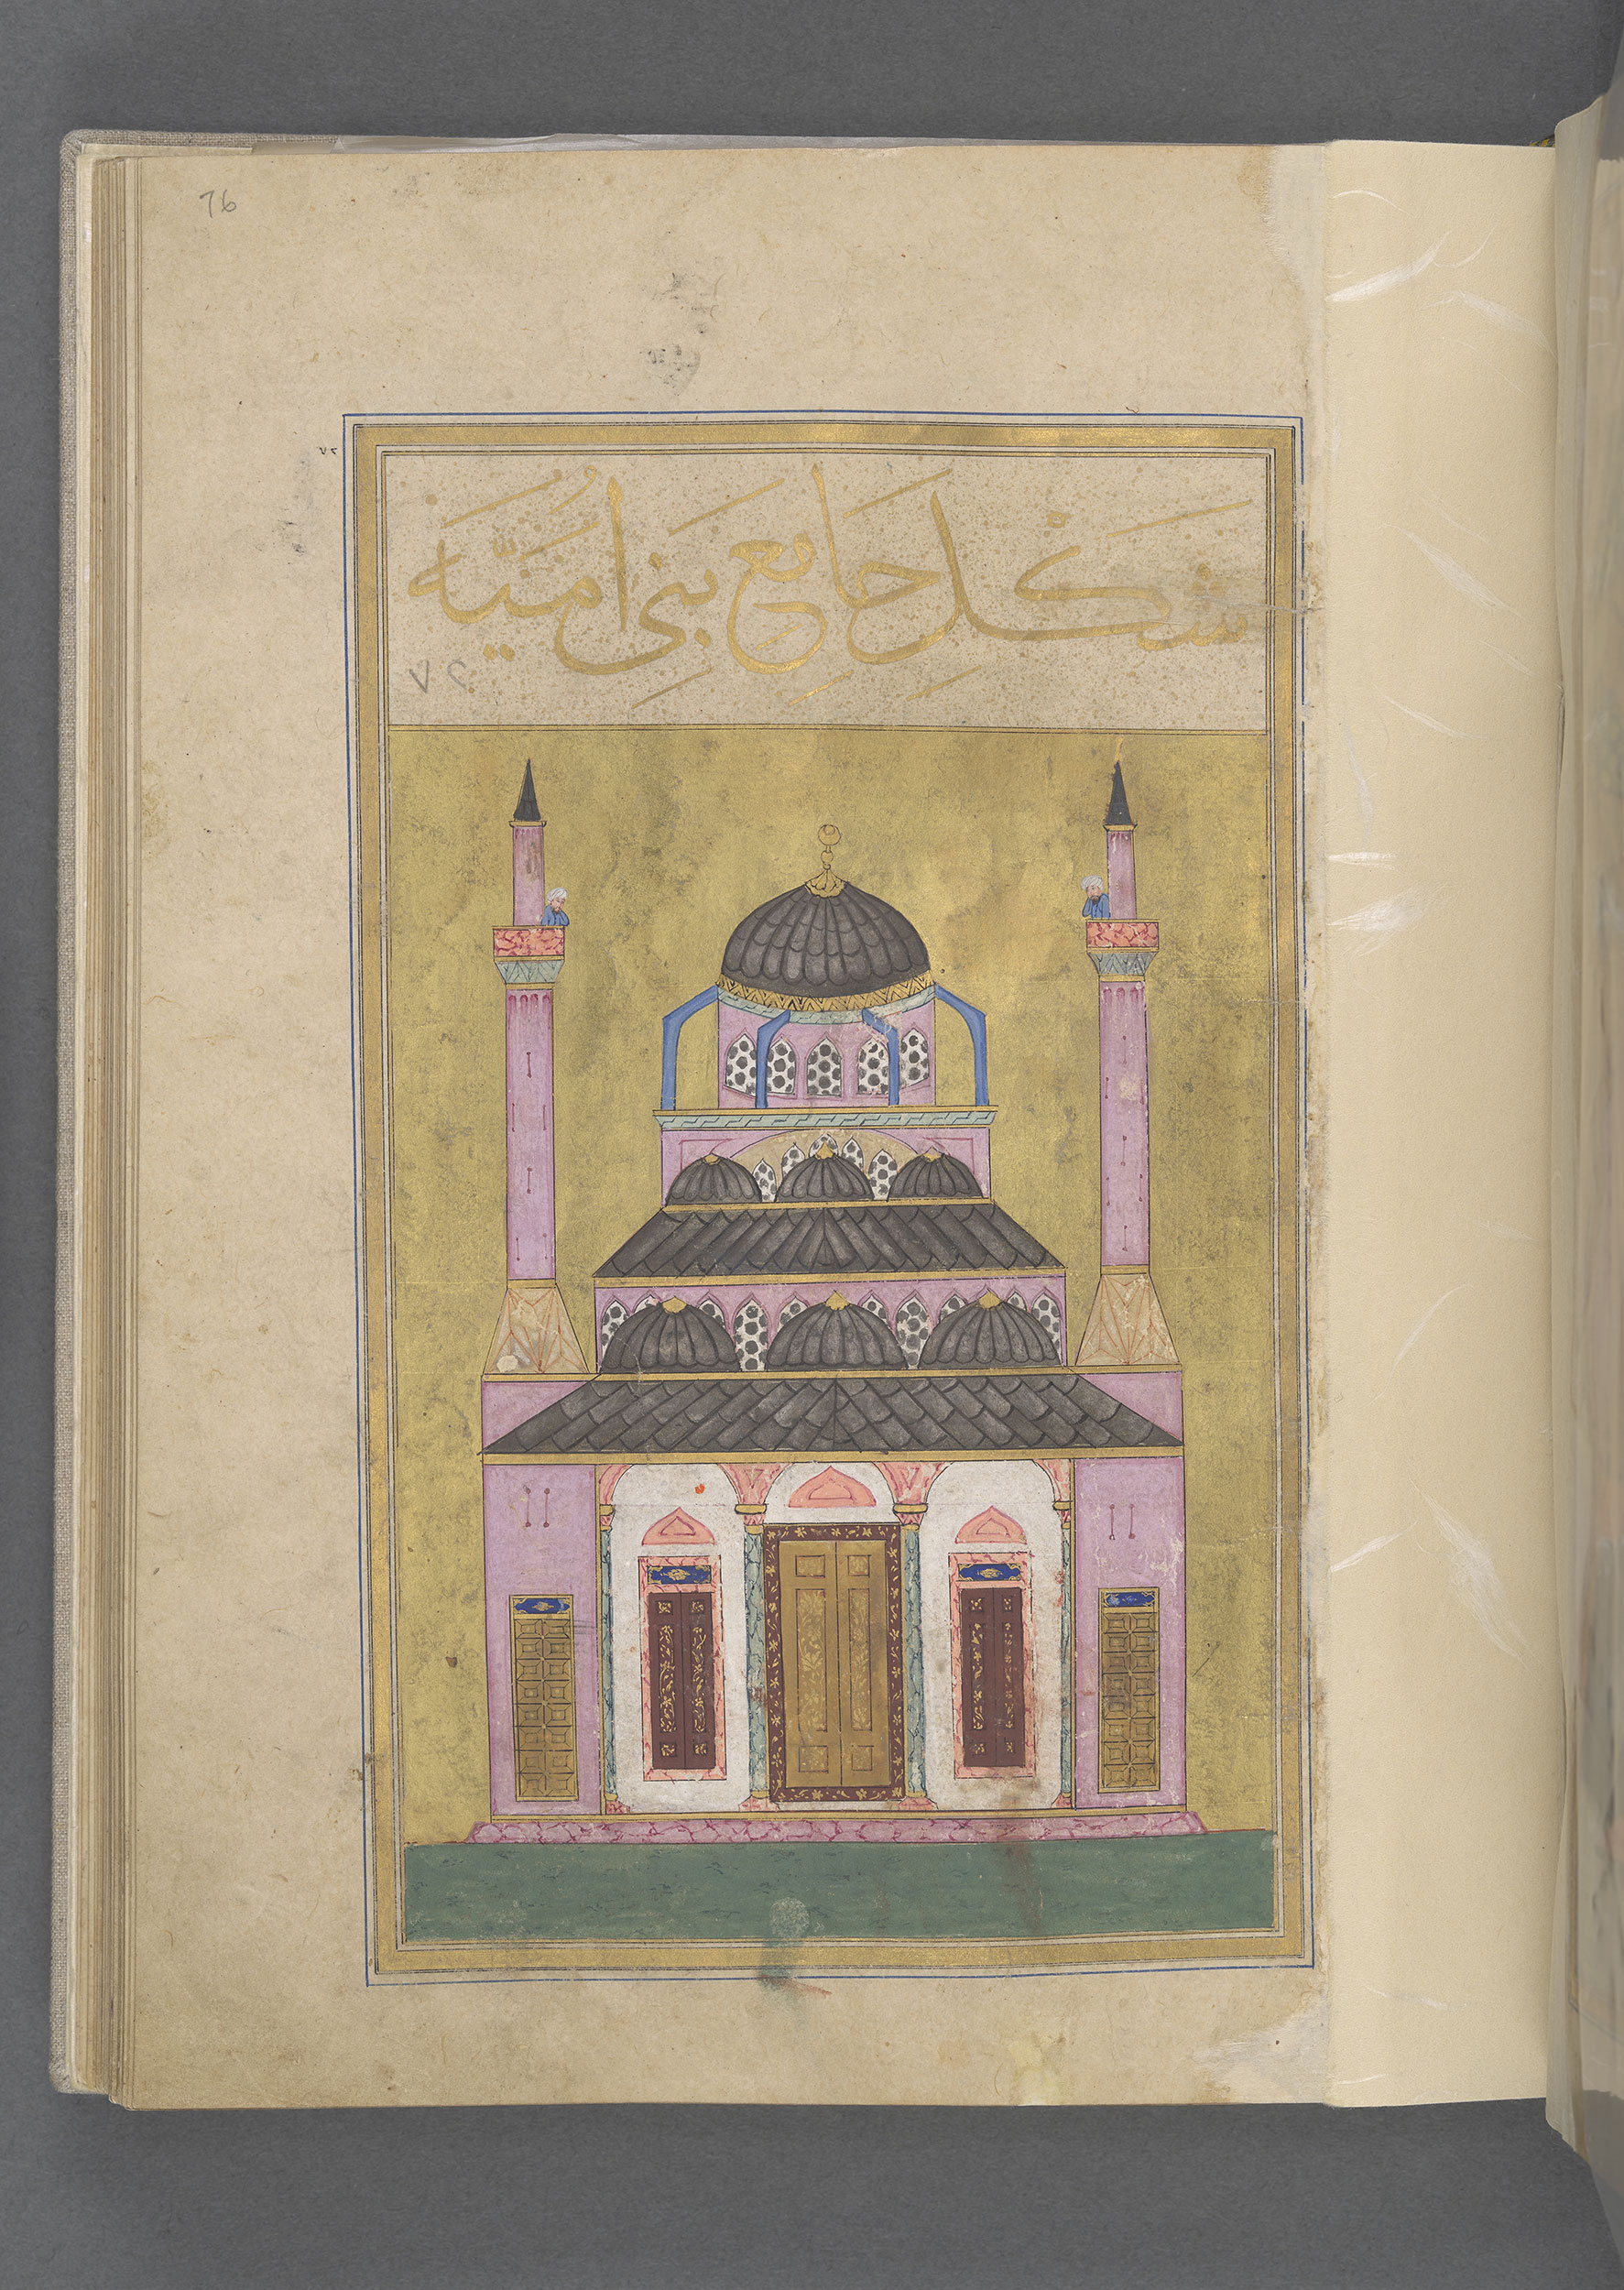 76
٧٢
شَكْلِ جَامِعِ بَنِي اُمَيَّه
٧٢